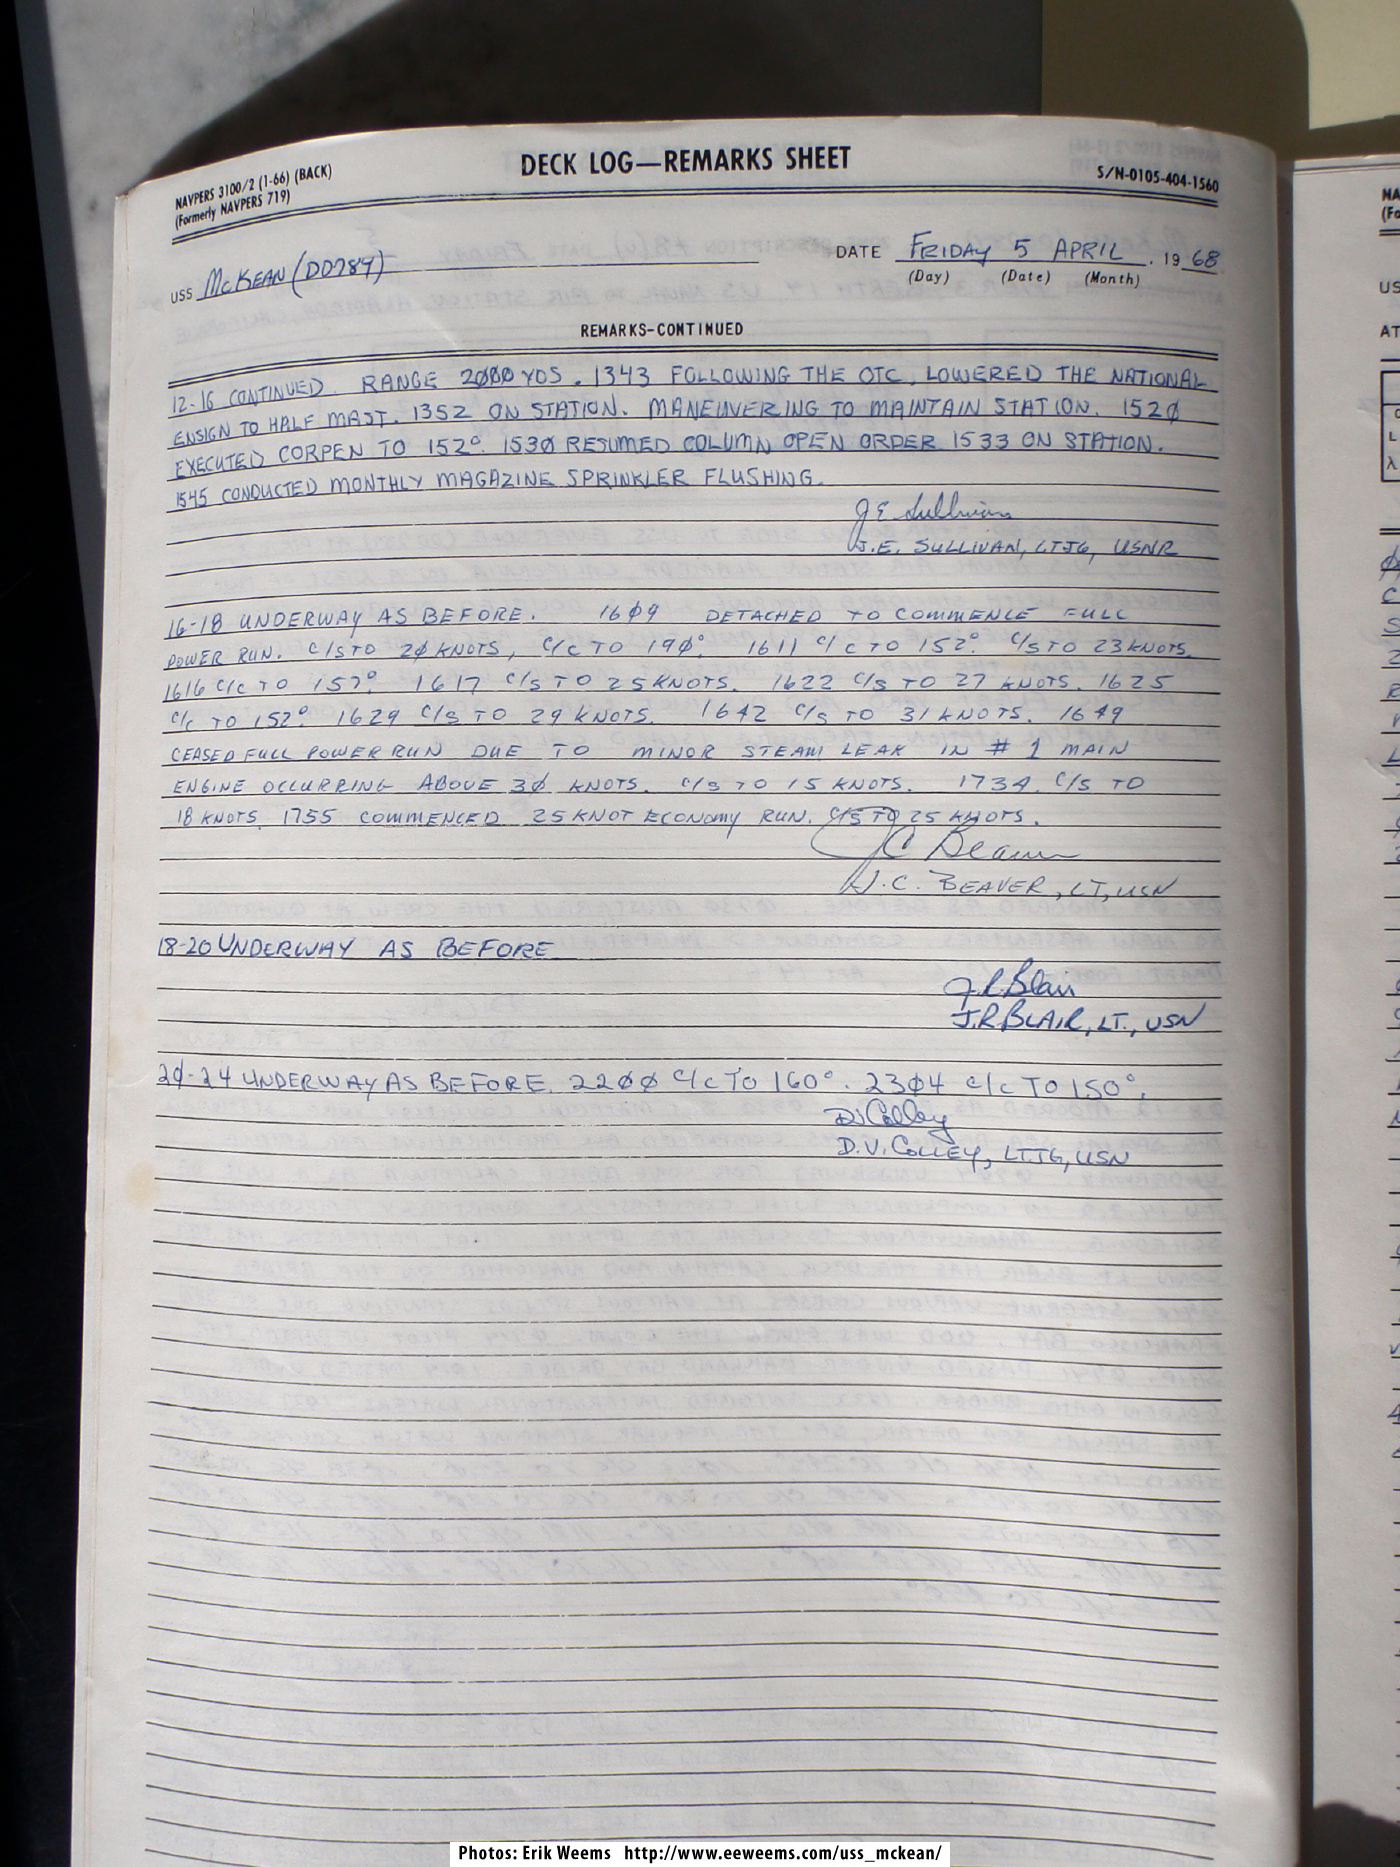 NAVPERS 3100/2 (1-66) (BACK)
(Formerly NAVPERS 719)
DECK LOG—REMARKS SHEET
S/N-0105-404-1560
USS McKEAN (DD784)
DATE FRIDAY 5 APRIL, 1968
(Day) (Date) (Month)
REMARKS-CONTINUED
12-16 CONTINUED. RANGE 2000 YDS. 1343 FOLLOWING THE OTC, LOWERED THE NATIONAL
ENSIGN TO HALF MAST. 1352 ON STATION. MANEUVERING TO MAINTAIN STATION. 152Ø
EXECUTED CORPEN TO 152°. 153Ø RESUMED COLUMN OPEN ORDER 1533 ON STATION.
1545 CONDUCTED MONTHLY MAGAZINE SPRINKLER FLUSHING.
J E Sullivan
J.E. SULLIVAN, LTJG, USNR
16-18 UNDERWAY AS BEFORE. 16Ø9 DETACHED TO COMMENCE FULL
POWER RUN. C/S TO 2Ø KNOTS, C/C TO 19Ø°. 1611 C/C TO 152°. C/S TO 23 KNOTS.
1616 C/C TO 157°. 1617 C/S TO 25 KNOTS. 1622 C/S TO 27 KNOTS. 1625
C/C TO 152°. 1629 C/S TO 29 KNOTS. 1642 C/S TO 31 KNOTS. 1649
CEASED FULL POWER RUN DUE TO MINOR STEAM LEAK IN # 1 MAIN
ENGINE OCCURRING ABOVE 3Ø KNOTS. C/S TO 15 KNOTS. 1734 C/S TO
18 KNOTS. 1755 COMMENCED 25 KNOT ECONOMY RUN. C/S TO 25 KNOTS.
J C Beaver
J.C. BEAVER, LT, USN
18-20 UNDERWAY AS BEFORE
J.R. Blair
J.R BLAIR, LT., USN
2Ø-24 UNDERWAY AS BEFORE. 22ØØ C/C TO 160°. 23Ø4 C/C TO 150°.
DV Colley
D.V. COLLEY, LTJG, USN
Photos: Erik Weems http://www.eeweems.com/uss_mckean/